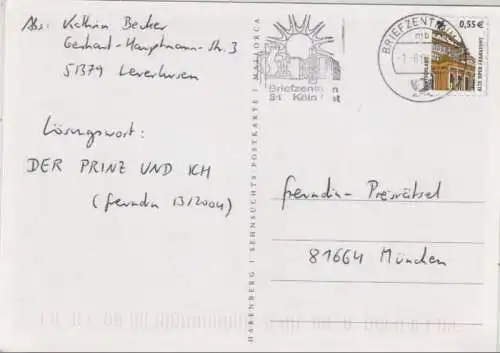 Abs: Kathrin Becker
Gerhart-Hauptmann-Str. 3
51379 Leverkusen
Lösungswort:
DER PRINZ UND ICH
(freundin 13/2004)
HARENBERG | SEHNSUCHTS-POSTKARTE | MALLORCA
Briefzentrum
BRIEFZENTRUM
mb
0,55€
ALTE OPER FRANKFURT
freundin-Preisrätsel
81664 München